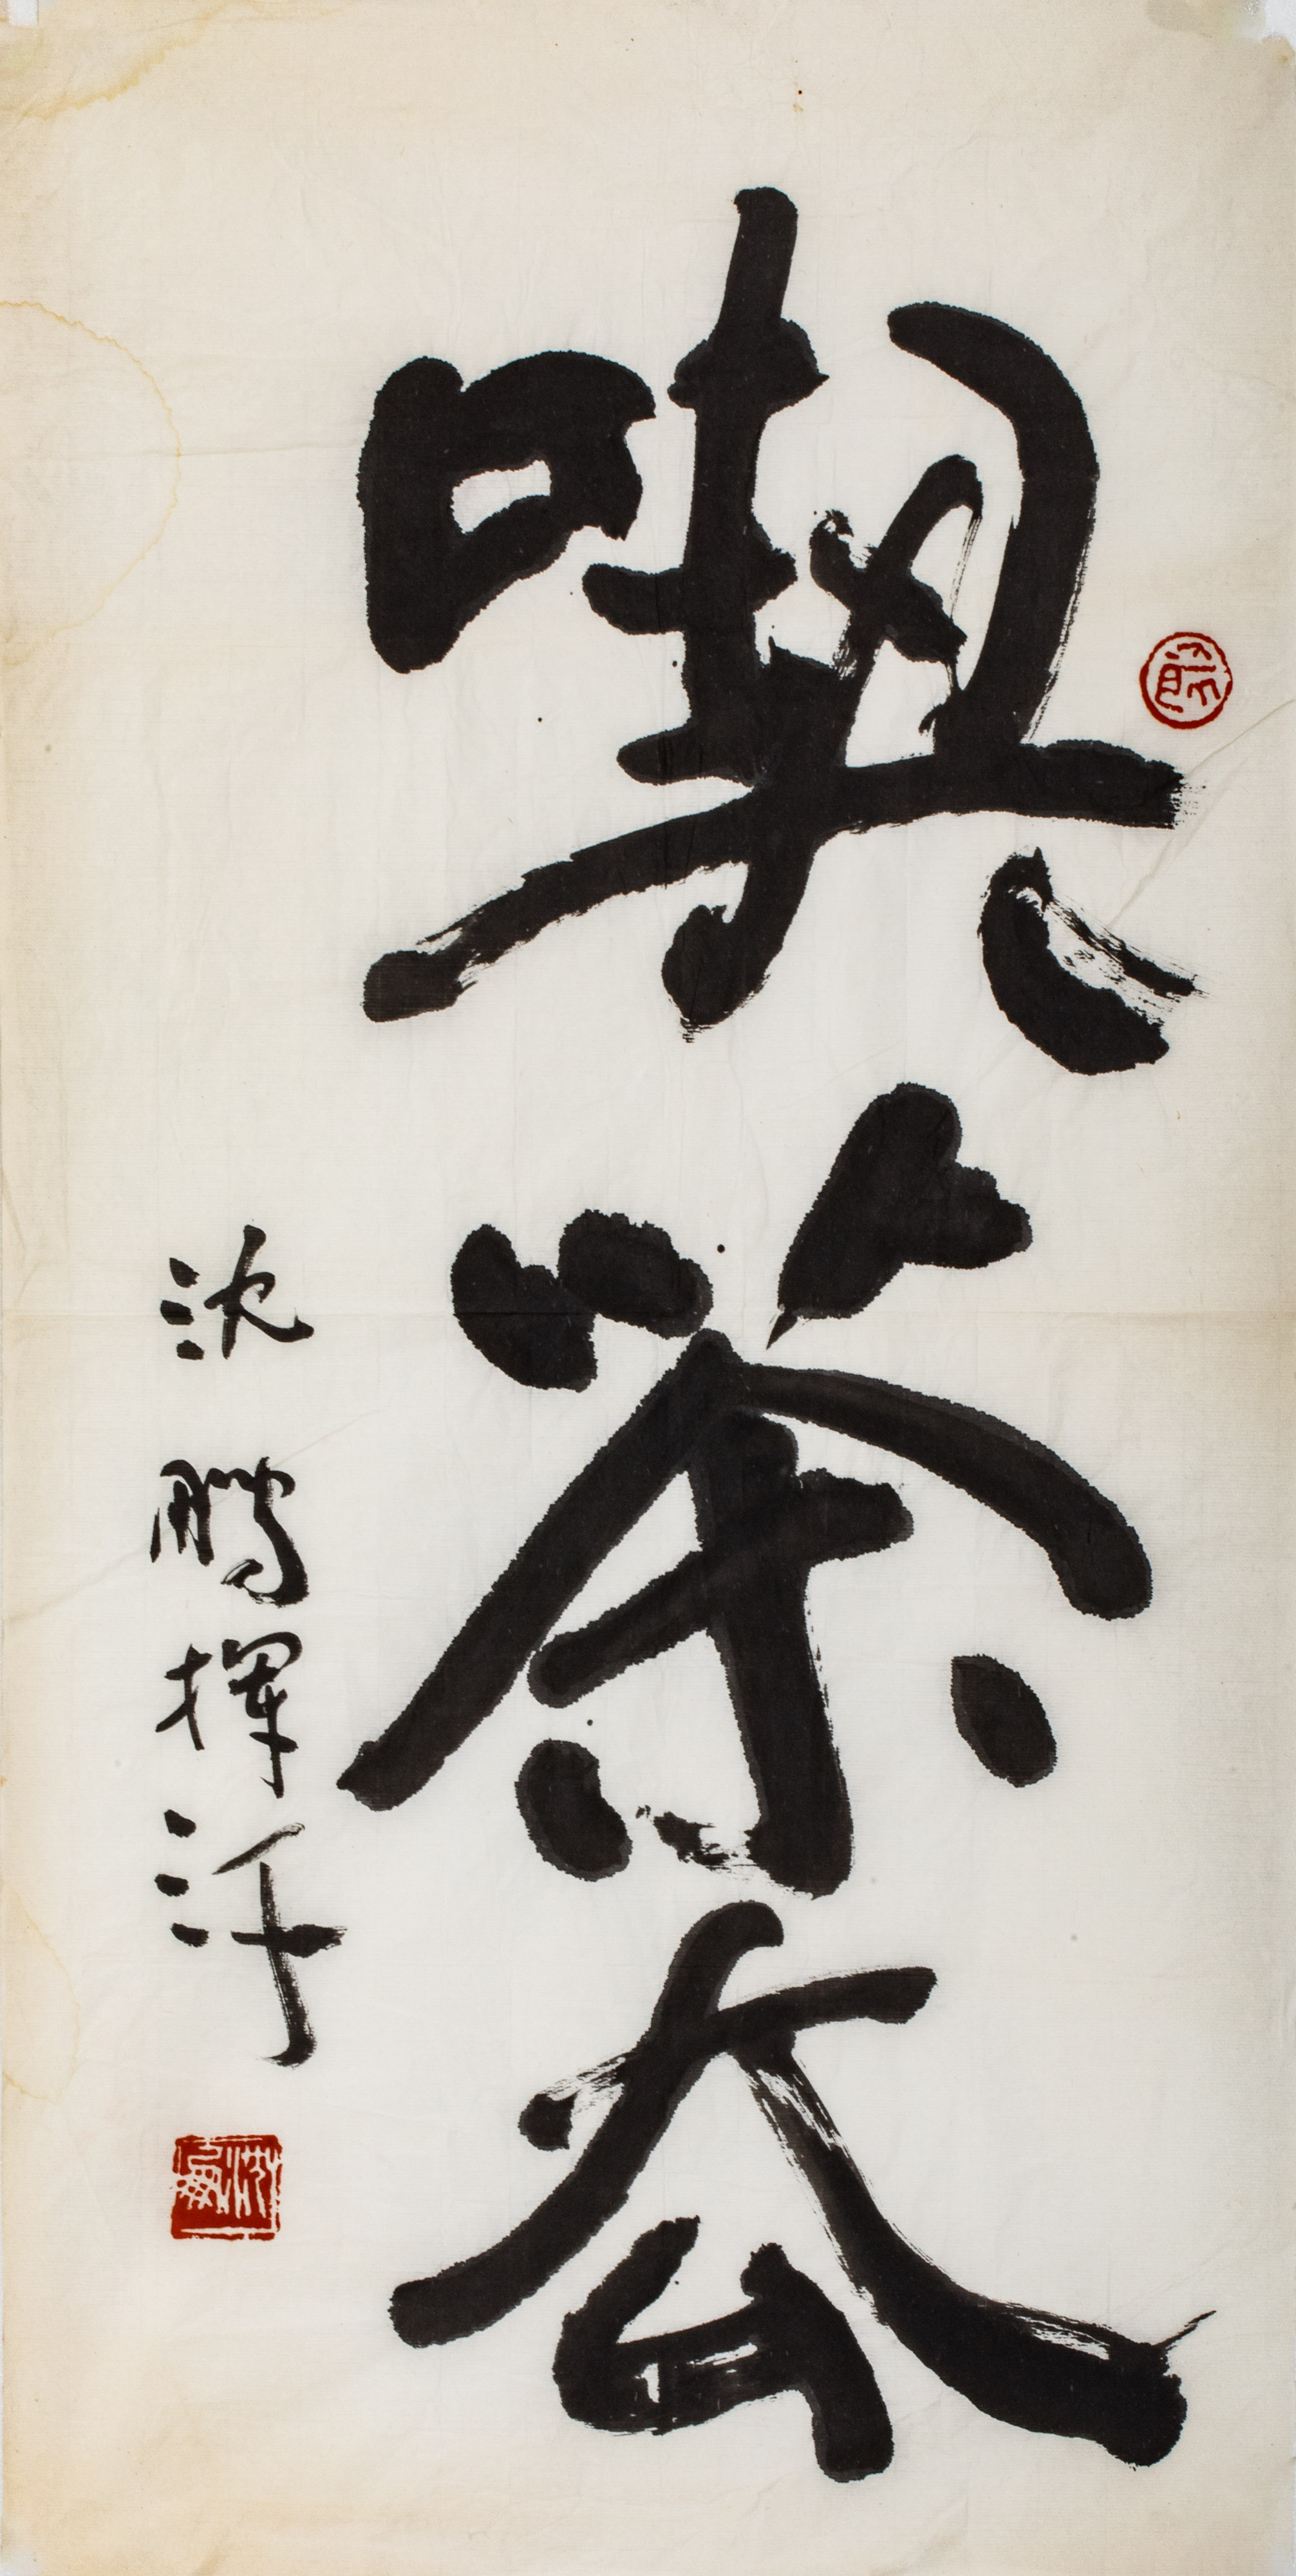 喫茶去
沈鵬揮汗